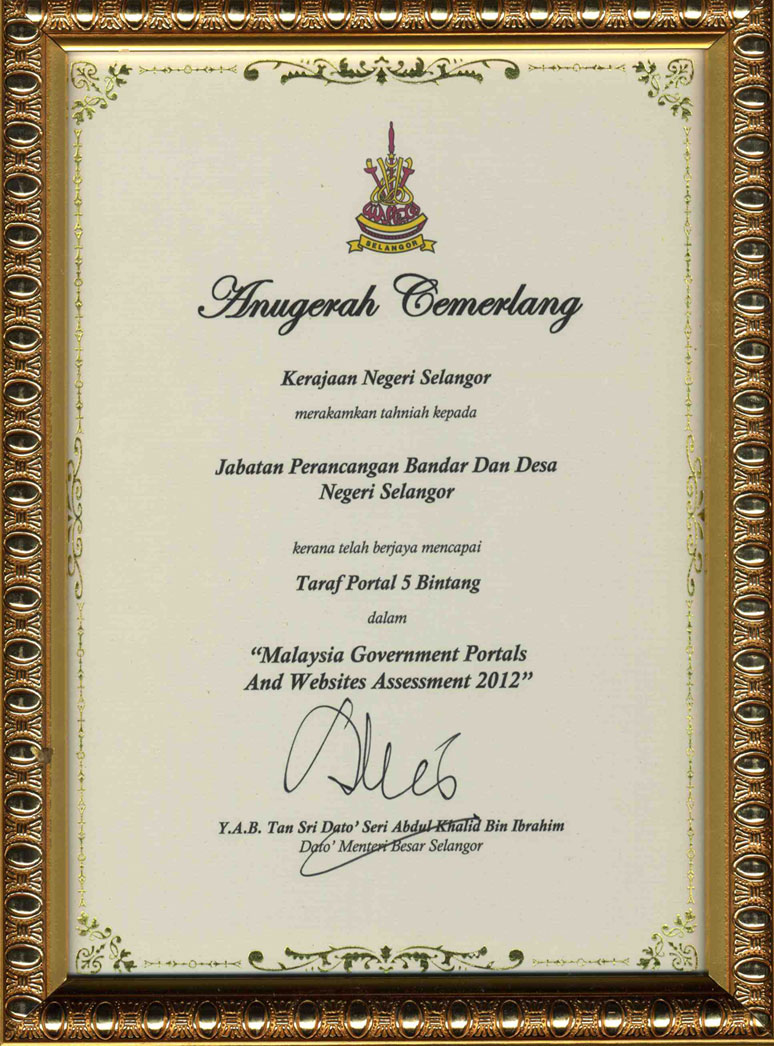 SELANGOR
Anugerah Cemerlang
Kerajaan Negeri Selangor
merakamkan tahniah kepada
Jabatan Perancangan Bandar Dan Desa
Negeri Selangor
kerana telah berjaya mencapai
Taraf Portal 5 Bintang
dalam
“Malaysia Government Portals
And Websites Assessment 2012”
Y.A.B. Tan Sri Dato’ Seri Abdul Khalid Bin Ibrahim
Dato’ Menteri Besar Selangor